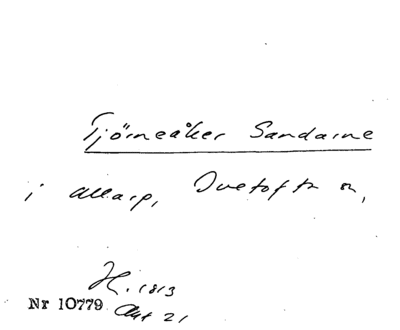 Tjörneåker Sandarne
i Allarp, Tvetofta sn,
H. 1813
Nr 10779 Akt 21